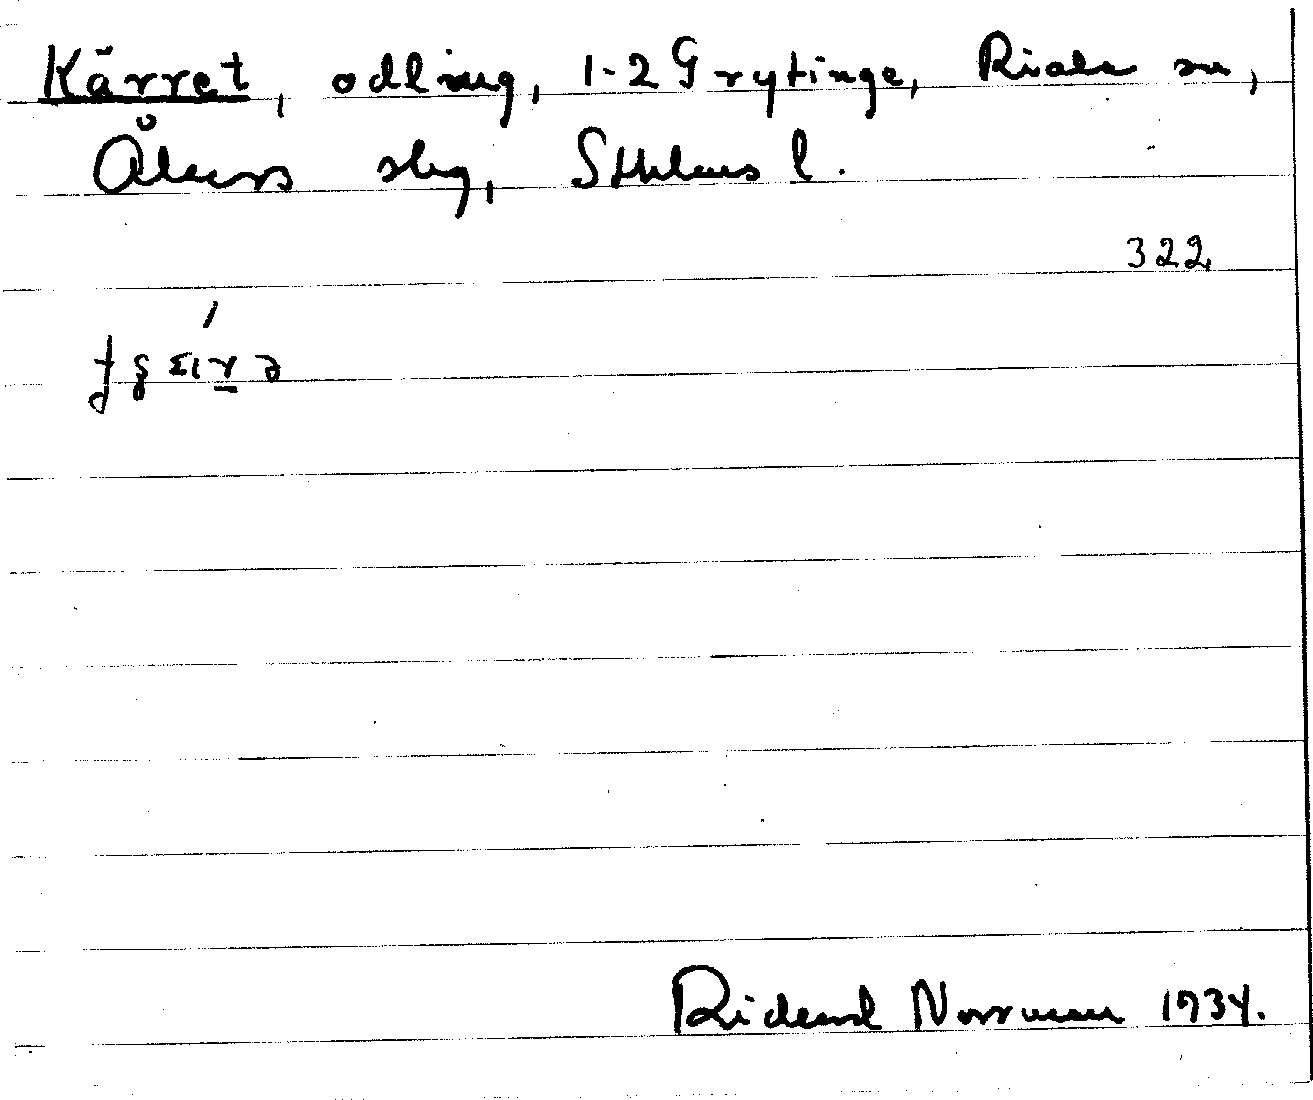 Kärret, odling, 1-2 Grytinge, Riala sn,
Åkers skg, Sthlms l.
322
Rickard Norrman 1934.